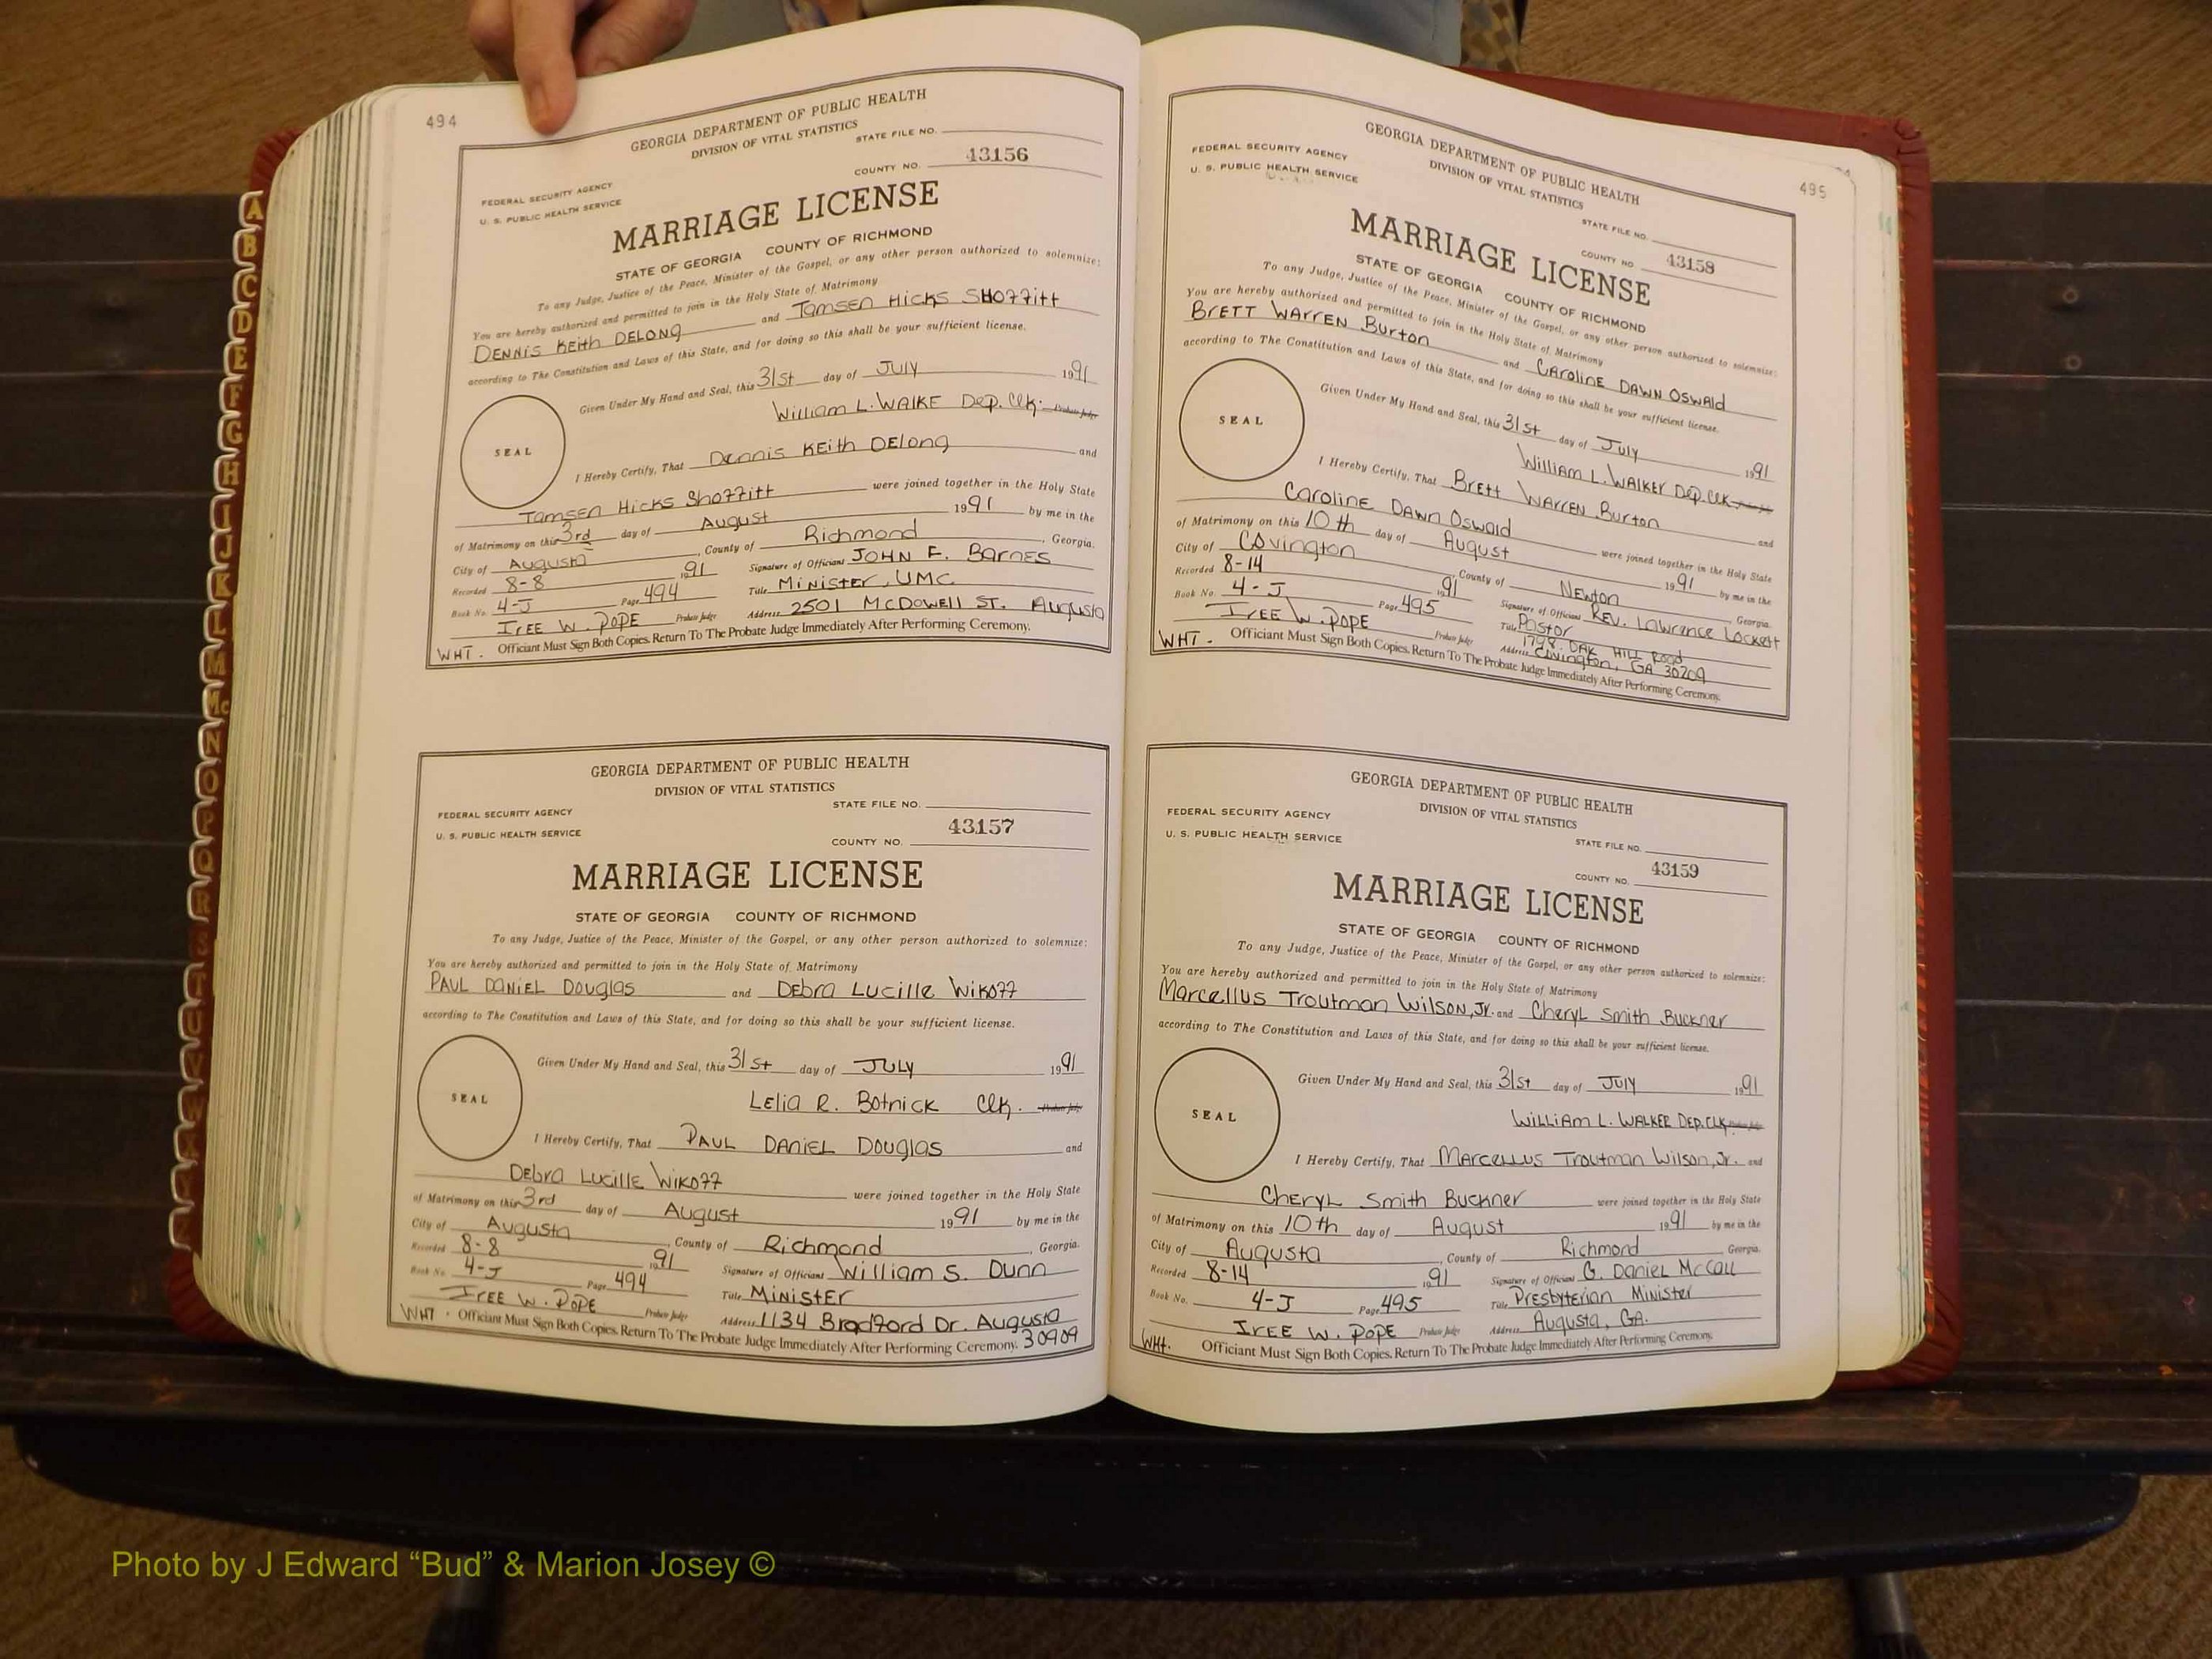 494
GEORGIA DEPARTMENT OF PUBLIC HEALTH
DIVISION OF VITAL STATISTICS
STATE FILE NO.
COUNTY NO. 43156
FEDERAL SECURITY AGENCY
U. S. PUBLIC HEALTH SERVICE
MARRIAGE LICENSE
STATE OF GEORGIA COUNTY OF RICHMOND
To any Judge, Justice of the Peace, Minister of the Gospel, or any other person authorized to solemnize:
You are hereby authorized and permitted to join in the Holy State of Matrimony
DENNIS KEITH DELONG and TAMSEN HICKS SHOFFITT
according to The Constitution and Laws of this State, and for doing so this shall be your sufficient license.
Given Under My Hand and Seal, this 31st day of JULY 1991
William L. WALKE Dep. Clk. Probate Judge
SEAL
I Hereby Certify, That Dennis KEITH DELONG and
TAMSEN HICKS SHOFFITT were joined together in the Holy State
of Matrimony on this 3rd day of August 1991 by me in the
City of Augusta, County of Richmond, Georgia.
Recorded 8-8 1991 Signature of Officiant JOHN F. BARNES
Book No. 4-J Page 494 Title MINISTER, UMC
IREE W. POPE Probate Judge Address 2501 MCDOWELL ST. Augusta
WHT. Officiant Must Sign Both Copies. Return To The Probate Judge Immediately After Performing Ceremony.
GEORGIA DEPARTMENT OF PUBLIC HEALTH
DIVISION OF VITAL STATISTICS
STATE FILE NO.
FEDERAL SECURITY AGENCY
U. S. PUBLIC HEALTH SERVICE
COUNTY NO. 43157
MARRIAGE LICENSE
STATE OF GEORGIA COUNTY OF RICHMOND
To any Judge, Justice of the Peace, Minister of the Gospel, or any other person authorized to solemnize:
You are hereby authorized and permitted to join in the Holy State of Matrimony
PAUL DANIEL DOUGLAS and DEBRA LUCILLE WIKOFF
according to The Constitution and Laws of this State, and for doing so this shall be your sufficient license.
Given Under My Hand and Seal, this 31st day of JULY 1991
LELIA R. BOTNICK Clk. Probate Judge
SEAL
I Hereby Certify, That PAUL DANIEL DOUGLAS and
DEBRA LUCILLE WIKOFF were joined together in the Holy State
of Matrimony on this 3rd day of August 1991 by me in the
City of Augusta, County of Richmond, Georgia.
Recorded 8-8 1991 Signature of Officiant William S. Dunn
Book No. 4-J Page 494 Title MINISTER
IREE W. POPE Probate Judge Address 1134 Bradford Dr. Augusta
WHT. Officiant Must Sign Both Copies. Return To The Probate Judge Immediately After Performing Ceremony. 30909
495
GEORGIA DEPARTMENT OF PUBLIC HEALTH
DIVISION OF VITAL STATISTICS
FEDERAL SECURITY AGENCY
U. S. PUBLIC HEALTH SERVICE
STATE FILE NO.
COUNTY NO. 43158
MARRIAGE LICENSE
STATE OF GEORGIA COUNTY OF RICHMOND
To any Judge, Justice of the Peace, Minister of the Gospel, or any other person authorized to solemnize:
You are hereby authorized and permitted to join in the Holy State of Matrimony
BRETT WARREN BURTON and CAROLINE DAWN OSWALD
according to The Constitution and Laws of this State, and for doing so this shall be your sufficient license.
Given Under My Hand and Seal, this 31st day of July 1991
William L. WALKER Dep. Clk.
SEAL
I Hereby Certify, That BRETT WARREN BURTON and
CAROLINE DAWN OSWALD were joined together in the Holy State
of Matrimony on this 10th day of August 1991 by me in the
City of Covington, County of Newton Georgia.
Recorded 8-14 1991 Signature of Officiant REV. LAWRENCE LOCKETT
Book No. 4-J Page 495 Title Pastor
IREE W. POPE Probate Judge Address 1798 OAK HILL Road
Covington, GA 30209
WHT. Officiant Must Sign Both Copies. Return To The Probate Judge Immediately After Performing Ceremony.
GEORGIA DEPARTMENT OF PUBLIC HEALTH
DIVISION OF VITAL STATISTICS
FEDERAL SECURITY AGENCY
U. S. PUBLIC HEALTH SERVICE
STATE FILE NO.
COUNTY NO. 43159
MARRIAGE LICENSE
STATE OF GEORGIA COUNTY OF RICHMOND
To any Judge, Justice of the Peace, Minister of the Gospel, or any other person authorized to solemnize:
You are hereby authorized and permitted to join in the Holy State of Matrimony
Marcellus Troutman Wilson, Jr. and Cheryl Smith Buckner
according to The Constitution and Laws of this State, and for doing so this shall be your sufficient license.
Given Under My Hand and Seal, this 31st day of JULY 1991
WILLIAM L. WALKER DEP. CLK.
SEAL
I Hereby Certify, That MARCELLUS Troutman Wilson, Jr. and
CHERYL Smith Buckner were joined together in the Holy State
of Matrimony on this 10th day of August 1991 by me in the
City of Augusta, County of Richmond Georgia.
Recorded 8-14 1991 Signature of Officiant G. Daniel McCall
Book No. 4-J Page 495 Title Presbyterian Minister
IREE W. POPE Probate Judge Address Augusta, GA.
WHT. Officiant Must Sign Both Copies. Return To The Probate Judge Immediately After Performing Ceremony.
A
B
C
D
E
F
G
H
I
J
K
L
M
Mc
N
O
P
Q
R
S
Photo by J Edward “Bud” & Marion Josey ©